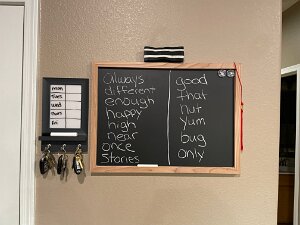 mon
Tues
Wed
Thurs
Fri
Always
different
enough
happy
high
near
once
Stories
good
that
nut
yum
bug
only